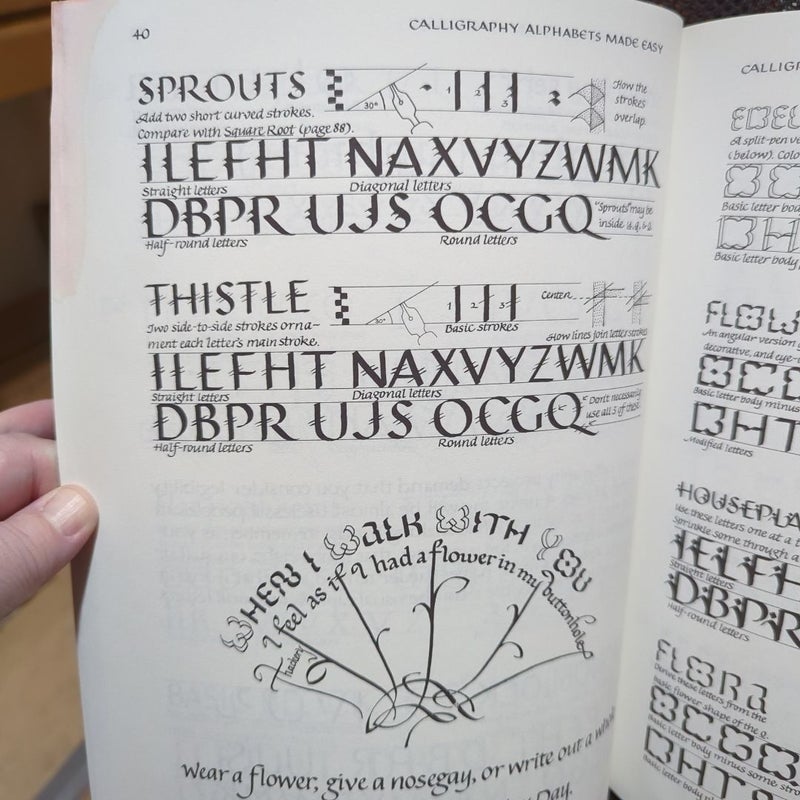 40
CALLIGRAPHY ALPHABETS MADE EASY
SPROUTS
Add two short curved strokes.
Compare with Square Root (page 88).
30°
1 2 3
How the
strokes
overlap.
ILEFHT NAXVYZWMK
Straight letters
Diagonal letters
DBPR UJS OCGQ
"Sprouts" may be
inside
Half-round letters
Round letters
THISTLE
Two side-to-side strokes orna-
ment each letter's main stroke.
30°
1 2 3
Basic strokes
Center
How lines join letter strokes
ILEFHT NAXVYZWMK
Straight letters
Diagonal letters
DBPR UJS OCGQ
Don't necessarily
use all 3 of these.
Half-round letters
Round letters
WHEN I WALK WITH YOU
I feel as if I had a flower in my buttonhole
Thackeray
wear a flower, give a nosegay, or write out a
Day.
CALLIGR
A split-pen
(below). Colo
Basic letter bod
Basic letter body
An angular version
decorative, and eye-
Basic letter body minus
BHT
Modified letters
HOUSEPLA
use these letters one at a t
Sprinkle some through a
ILEFH
Straight letters
DBPR
Half-round letters
FLORA
Derive these letters from the
basic flower shape of the O.
Basic letter body minus some stro